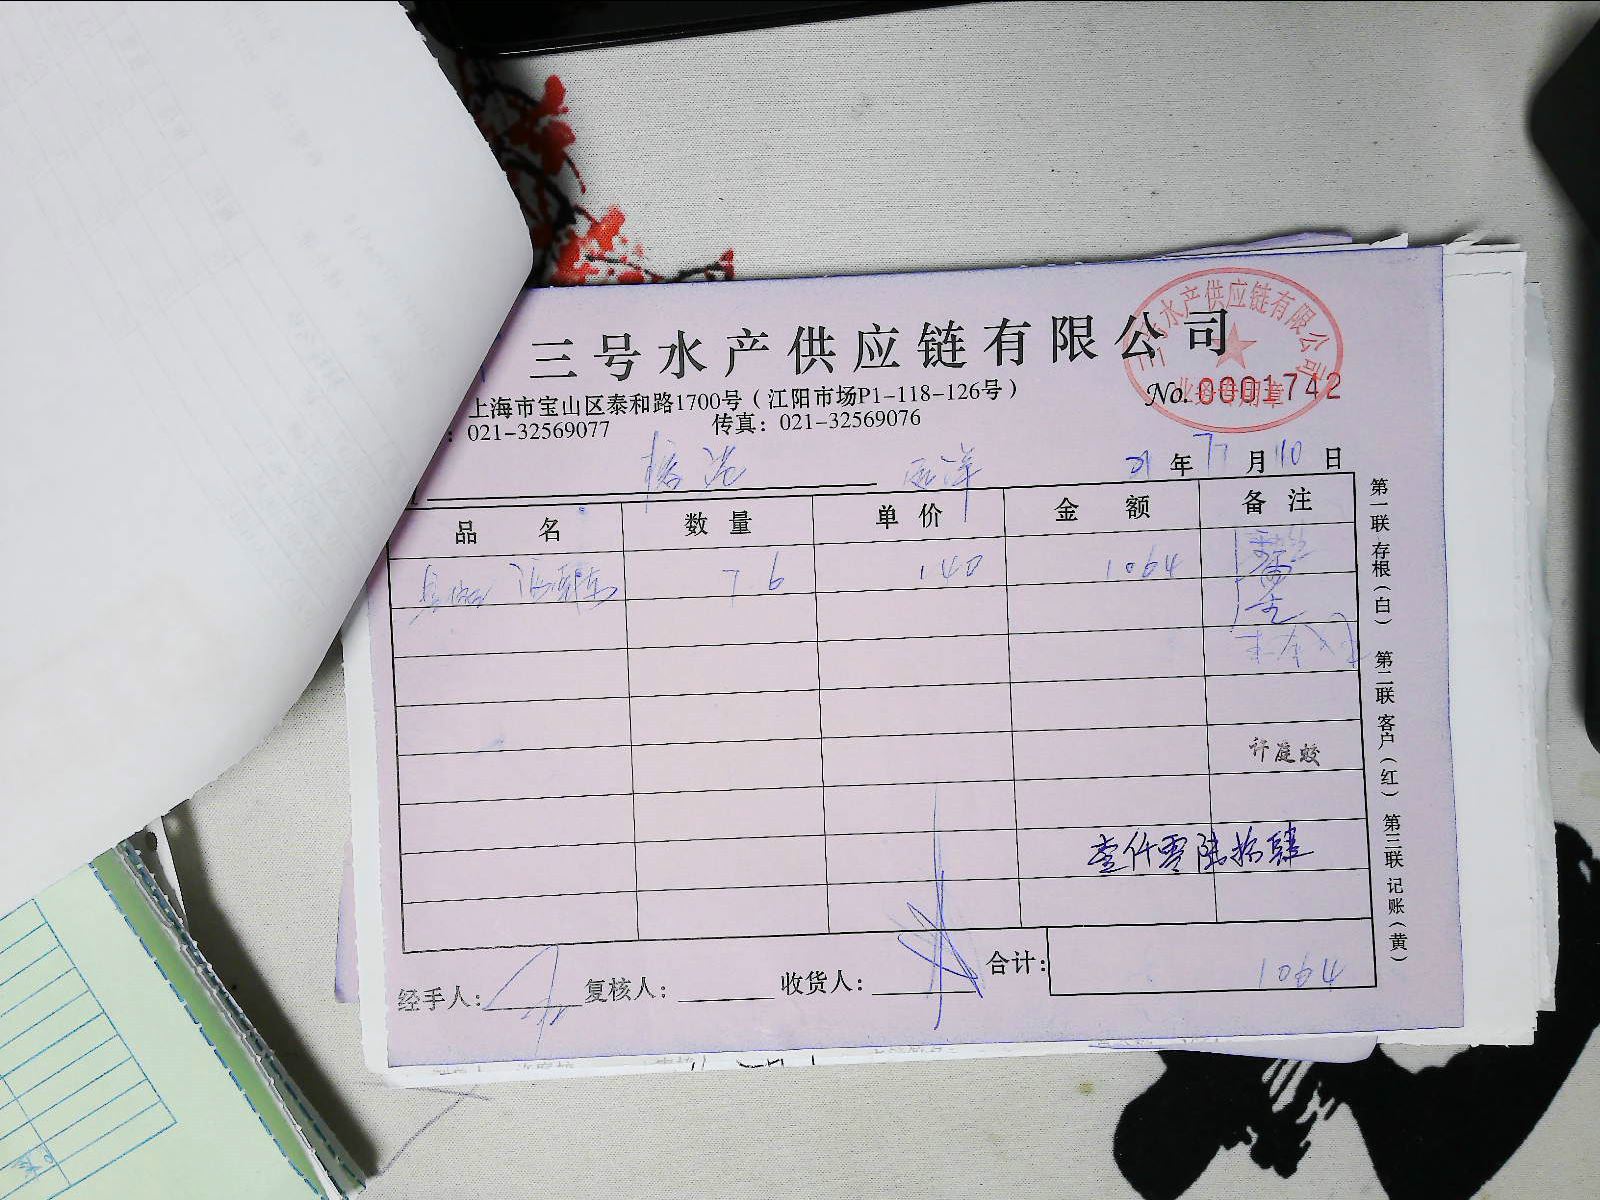 三号水产供应链有限公司
三号水产供应链有限公司
业务专用章
上海市宝山区泰和路1700号（江阳市场P1-118-126号）
No. 0001742
：021-32569077 传真：021-32569076
21年 月10日
品 名 数 量 单 价 金 额 备 注
7 6 140 1064
许庭蛟
壹仟零陆拾肆
经手人： 复核人： 收货人： 合计： 1064
第一联 存根（白） 第二联 客户（红） 第三联 记账（黄）